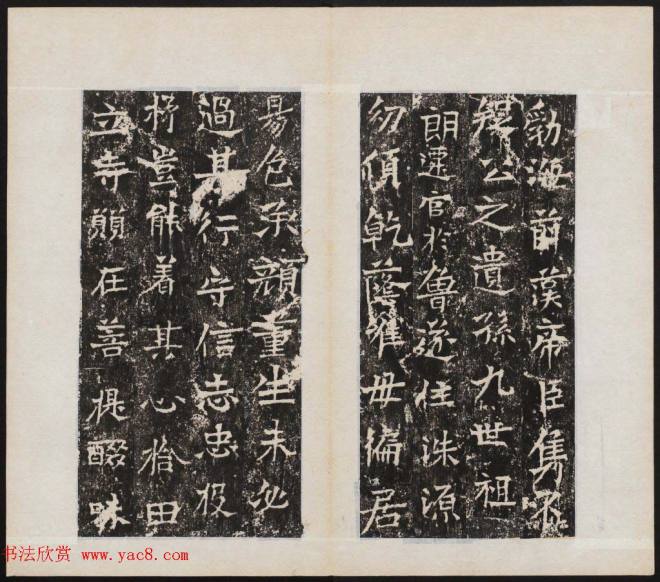 勃海前漢帝臣雋不
疑公之遺孫九世祖
朗遷官於魯遂住洙源
幼傾乾蔭唯母偏居
易色承顏董生未必
過其行守信志忠投
杼豈能着其心捨田
立寺願在菩提醊味
书法欣赏 www.yac8.com